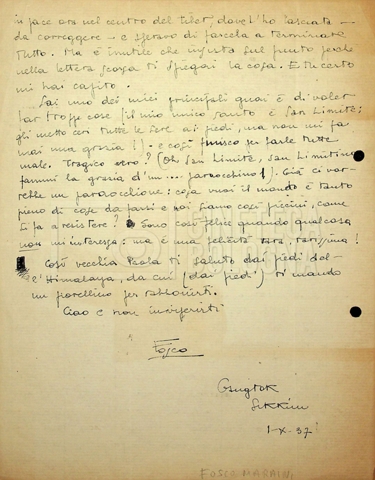 si pace ora nel centro del Tibet, dove l'ho lasciata —
da correggere — e speravo di farcela a terminare
tutto. Ma è inutile che insista sul punto perché
nella lettera scorsa ti spiegai la cosa. E tu certo
mi hai capito.
Sai uno dei miei principali guai è di voler
far troppe cose (il mio unico santo è San Limite;
gli metto ceri tutte le sere ai piedi, ma non mi fa
mai una grazia!) — e così finisco per farle tutte
male. Tragico vero? (Oh San Limite, San Limitino
fammi la grazia d'un ... paraocchino!). Già ci vor-
rebbe un paraocchione: cosa vuoi il mondo è tanto
pieno di cose da farsi e noi siamo così piccini, come
si fa a resistere? Sono così felice quando qualcosa
non mi interessa: ma è una felicità rara, rarissima!
Così vecchia Paola ti saluto dai piedi del-
l'Himalaya, da cui (dai piedi) ti mando
un fiorellino per rabbonirti.
Ciao e non invipirirti
Fosco
Gangtok
Sikkim
1-X-37
FOSCO MARAINI